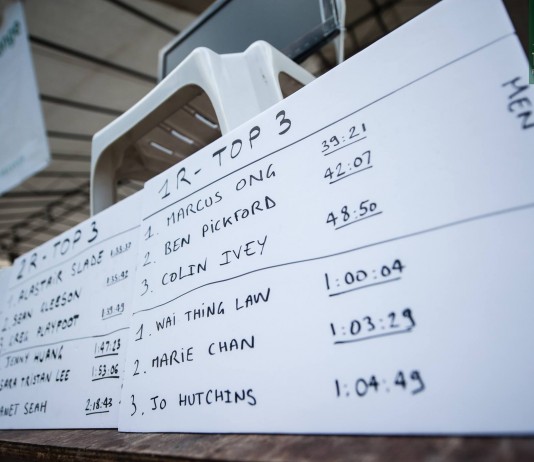 2R-TOP 3
1. ALASTAIR SLADE
2. SEAN GLEESON
GREG PLAYFOOT
JENNY HUANG 1:47:23
SARA TRISTAN LEE 1:53:06
JANET SEAH 2:18:43
1R-TOP 3
MEN
1. MARCUS ONG 39:21
2. BEN PICKFORD 42:07
3. COLIN IVEY 48:50
1. WAI THING LAW 1:00:04
2. MARIE CHAN 1:03:29
3. JO HUTCHINS 1:04:49